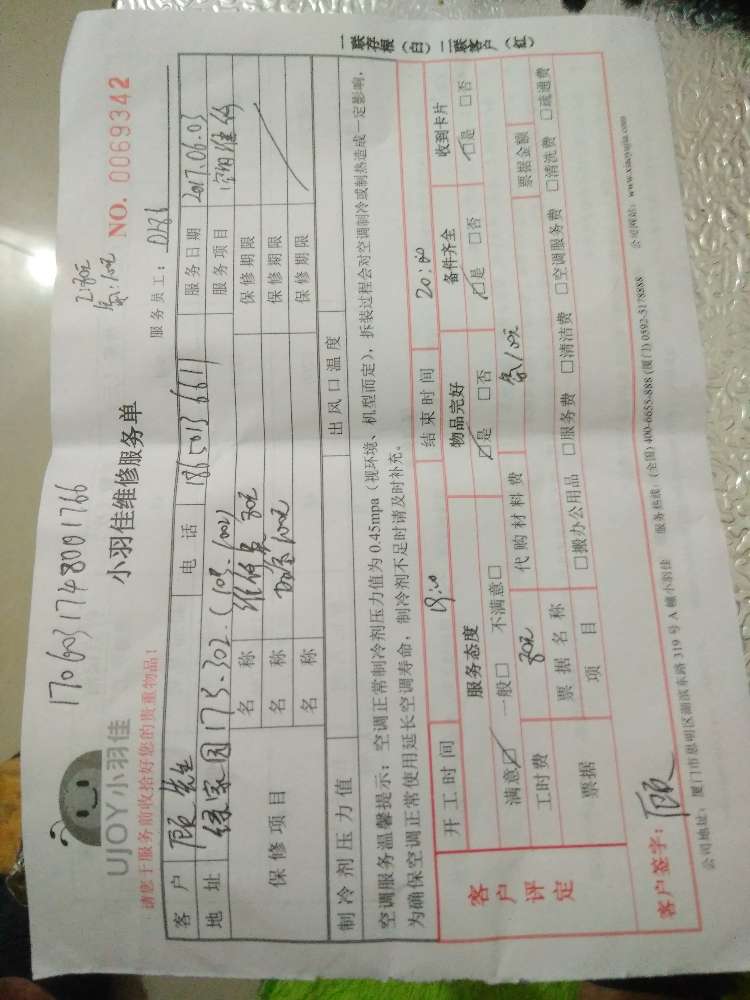 1706031748001766
UJOY小羽佳
小羽佳维修服务单
NO. 0069342
请您于服务前收拾好您的贵重物品！
服务员工：
客户 顾先生 电话 18650136611 服务日期 2017.06.03
地址 173-302 服务项目 空调维修
保修项目 名称 维修费 80元 保修期限
名称 加氟100元 保修期限
名称 保修期限
制冷剂压力值 出风口温度
空调服务温馨提示：空调正常制冷剂压力值为 0.45mpa（视环境、机型而定），拆装过程会对空调制冷或制热造成一定影响，
为确保空调正常使用延长空调寿命，制冷剂不足时请及时补充。
客户评定
开工时间 19:00 结束时间 20:00
服务态度 物品完好 备件齐全 收到卡片
满意☑ 一般□ 不满意□ ☑是 □否 ☑是 □否 ☑是 □否
工时费 80元 代购材料费 氟100元
票据 票据名称 票据金额
项目 □搬办公用品 □服务费 □清洁费 □空调服务费 □清洗费 □疏通费
客户签字：顾
公司地址：厦门市思明区湖滨东路 319 号 A 幢小羽佳 服务热线：(全国) 400-6655-888 (厦门) 0592-5178888 公司网站：www.xiaoyujia.com
一联存根（白） 二联客户（红）